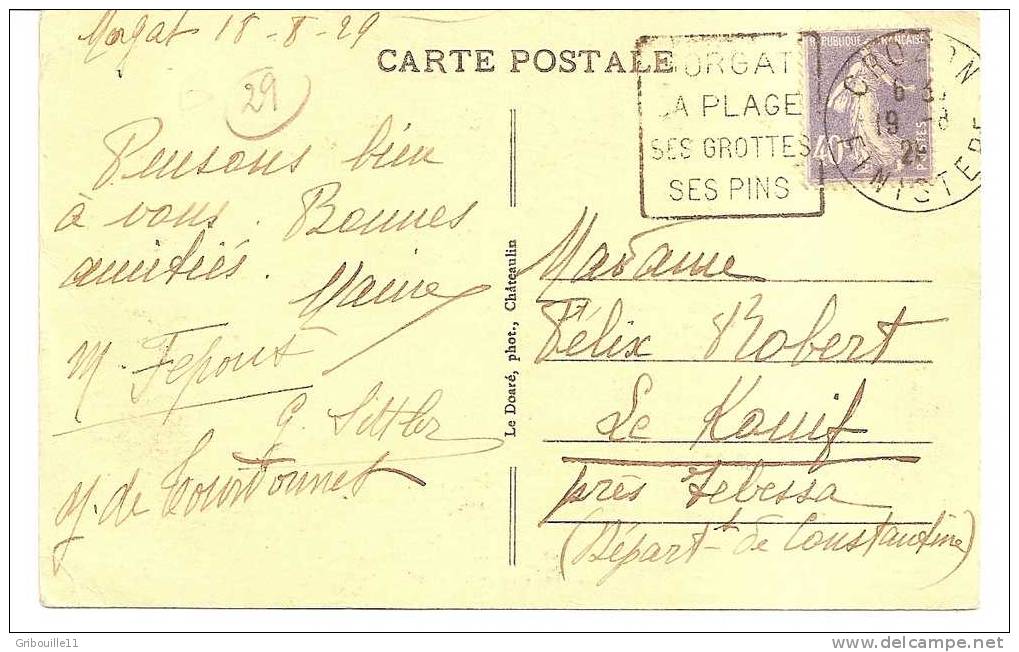 Morgat 18-8-29
CARTE POSTALE
29
MORGAT
LA PLAGE
SES GROTTES
SES PINS
REPUBLIQUE FRANCAISE
40
CROZON
6
19 -8
29
FINISTERE
Pensons bien
à vous. Bonnes
amitiés.
M.
G. Sittler
y. de
Le Doaré, phot., Châteaulin
Madame
Félix Robert
Le Kouif
près Tebessa
(Départ-t de Constantine)
Gribouille11
www.delcampe.net